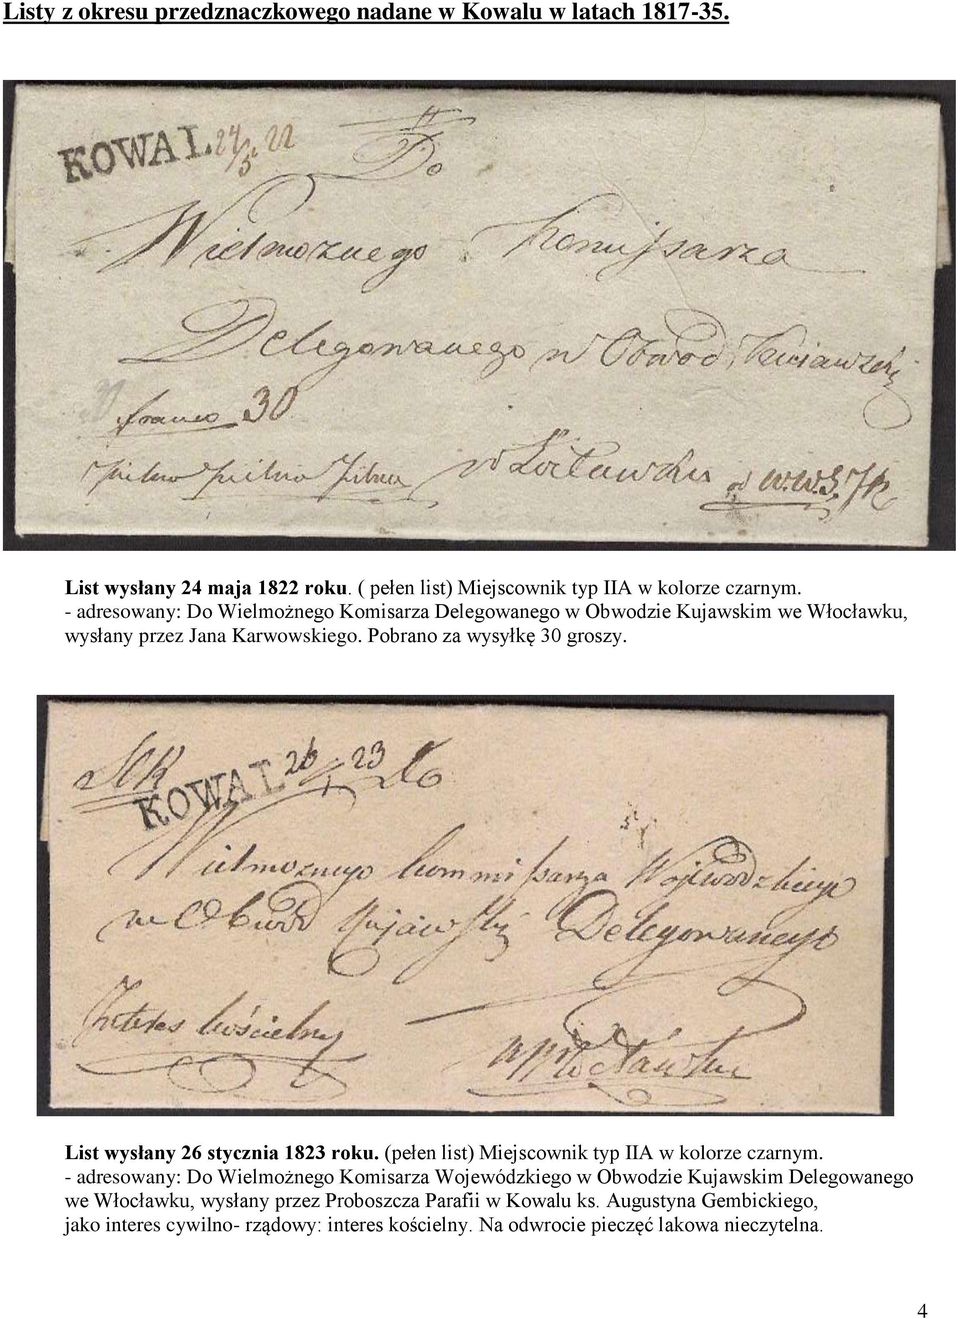 Listy z okresu przedznaczkowego nadane w Kowalu w latach 1817-35.
KOWAL 24/5 22
Do
Wielmożnego Komissarza
Delegowanego w Obwod. Kujawskiẽ
franco 30
pilno pilno pilno w Włocławku od w.w.J. JK
List wysłany 24 maja 1822 roku. ( pełen list) Miejscownik typ IIA w kolorze czarnym.
- adresowany: Do Wielmożnego Komisarza Delegowanego w Obwodzie Kujawskim we Włocławku,
wysłany przez Jana Karwowskiego. Pobrano za wysyłkę 30 groszy.
KOWAL 26/1 23 Do
Wielmożnego Kommissarza Wojewodzkiego
w Obwod Kujawski Delegowanego
Interes kościelny
w Włocławku
List wysłany 26 stycznia 1823 roku. (pełen list) Miejscownik typ IIA w kolorze czarnym.
- adresowany: Do Wielmożnego Komisarza Wojewódzkiego w Obwodzie Kujawskim Delegowanego
we Włocławku, wysłany przez Proboszcza Parafii w Kowalu ks. Augustyna Gembickiego,
jako interes cywilno- rządowy: interes kościelny. Na odwrocie pieczęć lakowa nieczytelna.
4